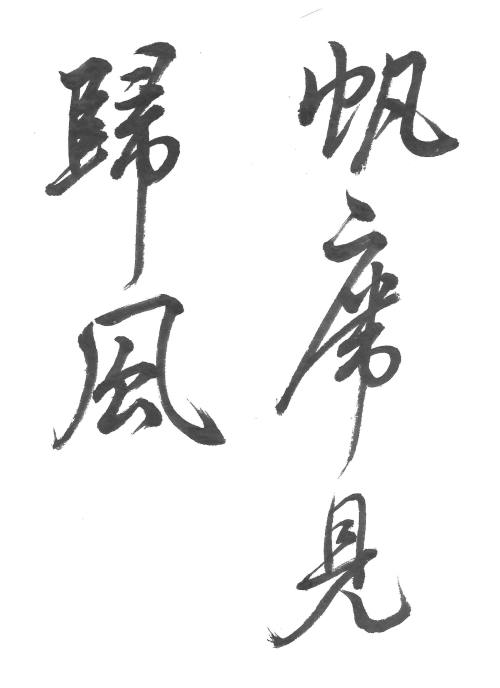 帆席見
歸風